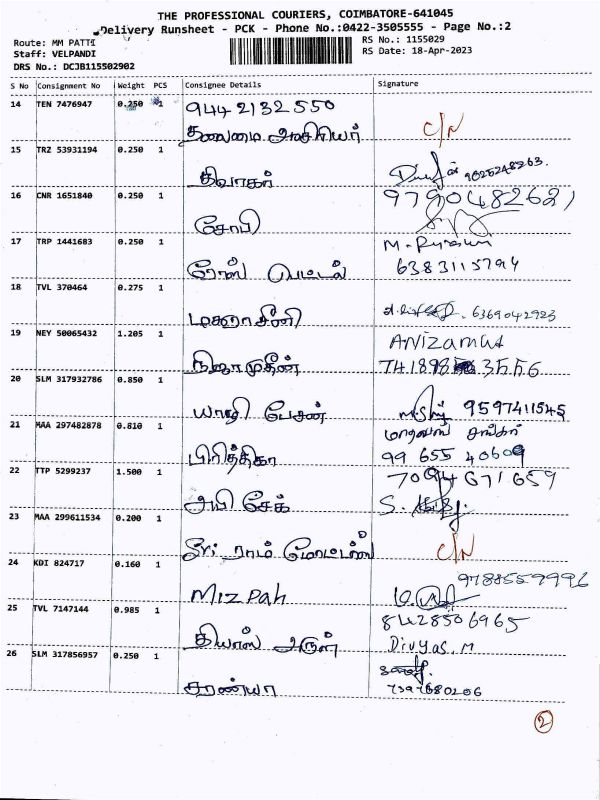 THE PROFESSIONAL COURIERS, COIMBATORE-641045
Delivery Runsheet - PCK - Phone No.:0422-3505555 - Page No.:2
Route: MM PATTI
RS No.: 1155029
Staff: VELPANDI
RS Date: 18-Apr-2023
DRS No.: DCJB115502902
S No Consignment No Weight PCS Consignee Details Signature
14 TEN 7476947 0.250 1 9442132550
தலைமை ஆசிரியர் C/N
15 TRZ 53931194 0.250 1
திவாகர் 9025248263.
16 CNR 1651840 0.250 1 9790482621
சோபி
17 TRP 1441683 0.250 1
ரோஸ் பெட்டல் 6383115794
18 TVL 370464 0.275 1
6369042923
19 NEY 50065432 1.205 1 ANIZAMUT
நிஜாமுதீன்
20 SLM 317932786 0.850 1
9597411545
21 MAA 297482878 0.810 1
பிரித்திகா 99 655 40609
22 TTP 5299237 1.500 1 7094671659
அபி சேக் S.
23 MAA 299611534 0.200 1
Sri ராம் மோட்டார்ஸ் C/N
24 KDI 824717 0.160 1 9788559996
MIZPah
25 TVL 7147144 0.985 1 8428506965
Divyas.M
26 SLM 317856957 0.250 1
சரண்யா 7397680206
2